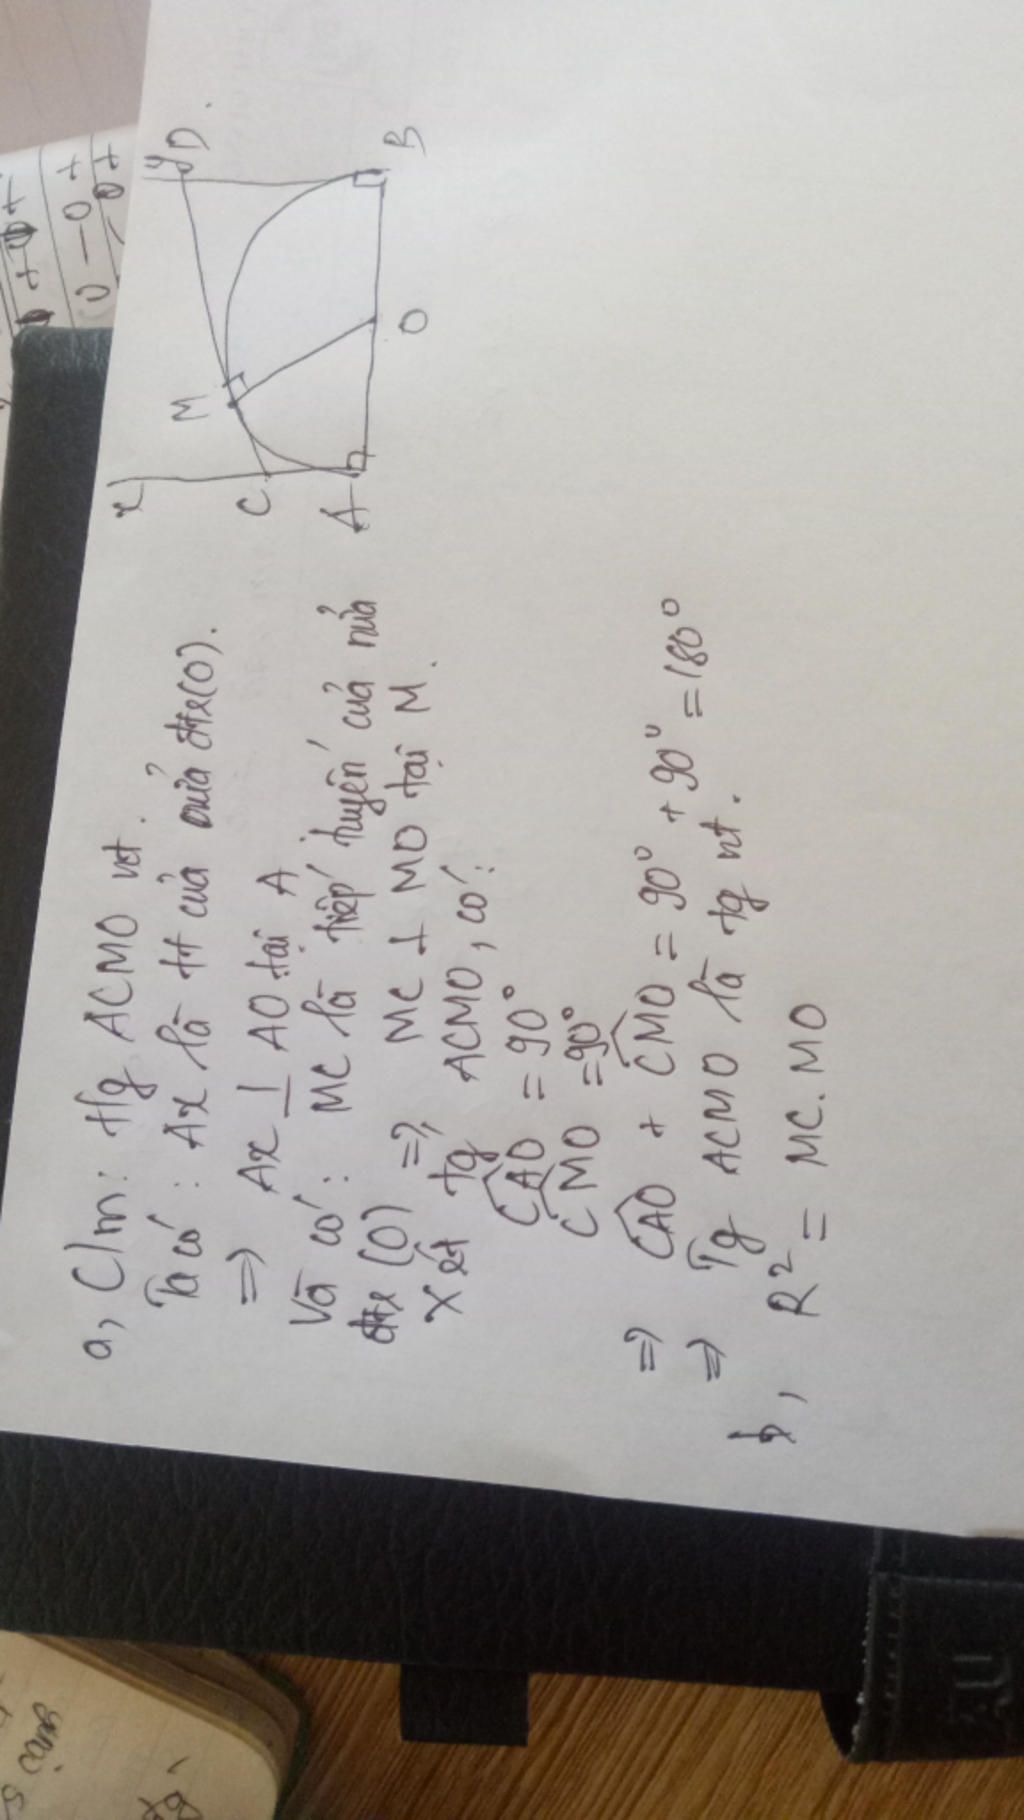 a, C/m: tg ACMO nt.
Ta có: Ax là tt của nửa đtr(O).
=> Ax ⊥ AO tại A
Và có: MC là tiếp tuyến của nửa
đtr (O) => MC ⊥ MO tại M.
Xét tg ACMO, có:
CAO = 90°
CMO = 90°
=> CAO + CMO = 90° + 90° = 180°
=> Tg ACMO là tg nt.
b, R² = MC. MO
x
C
A
M
O
y D
B